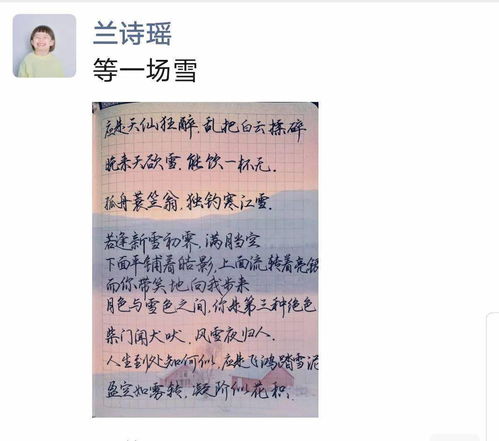 兰诗瑶
等一场雪
应是天仙狂醉,乱把白云揉碎
晚来天欲雪,能饮一杯无.
孤舟蓑笠翁,独钓寒江雪.
若逢新雪初霁,满月当空
下面平铺着皓影,上面流转着亮银
而你带笑地向我步来
月色与雪色之间,你是第三种绝色
柴门闻犬吠,风雪夜归人.
人生到处知何似,应是飞鸿踏雪泥
盈空如雾转,凝阶似花积.